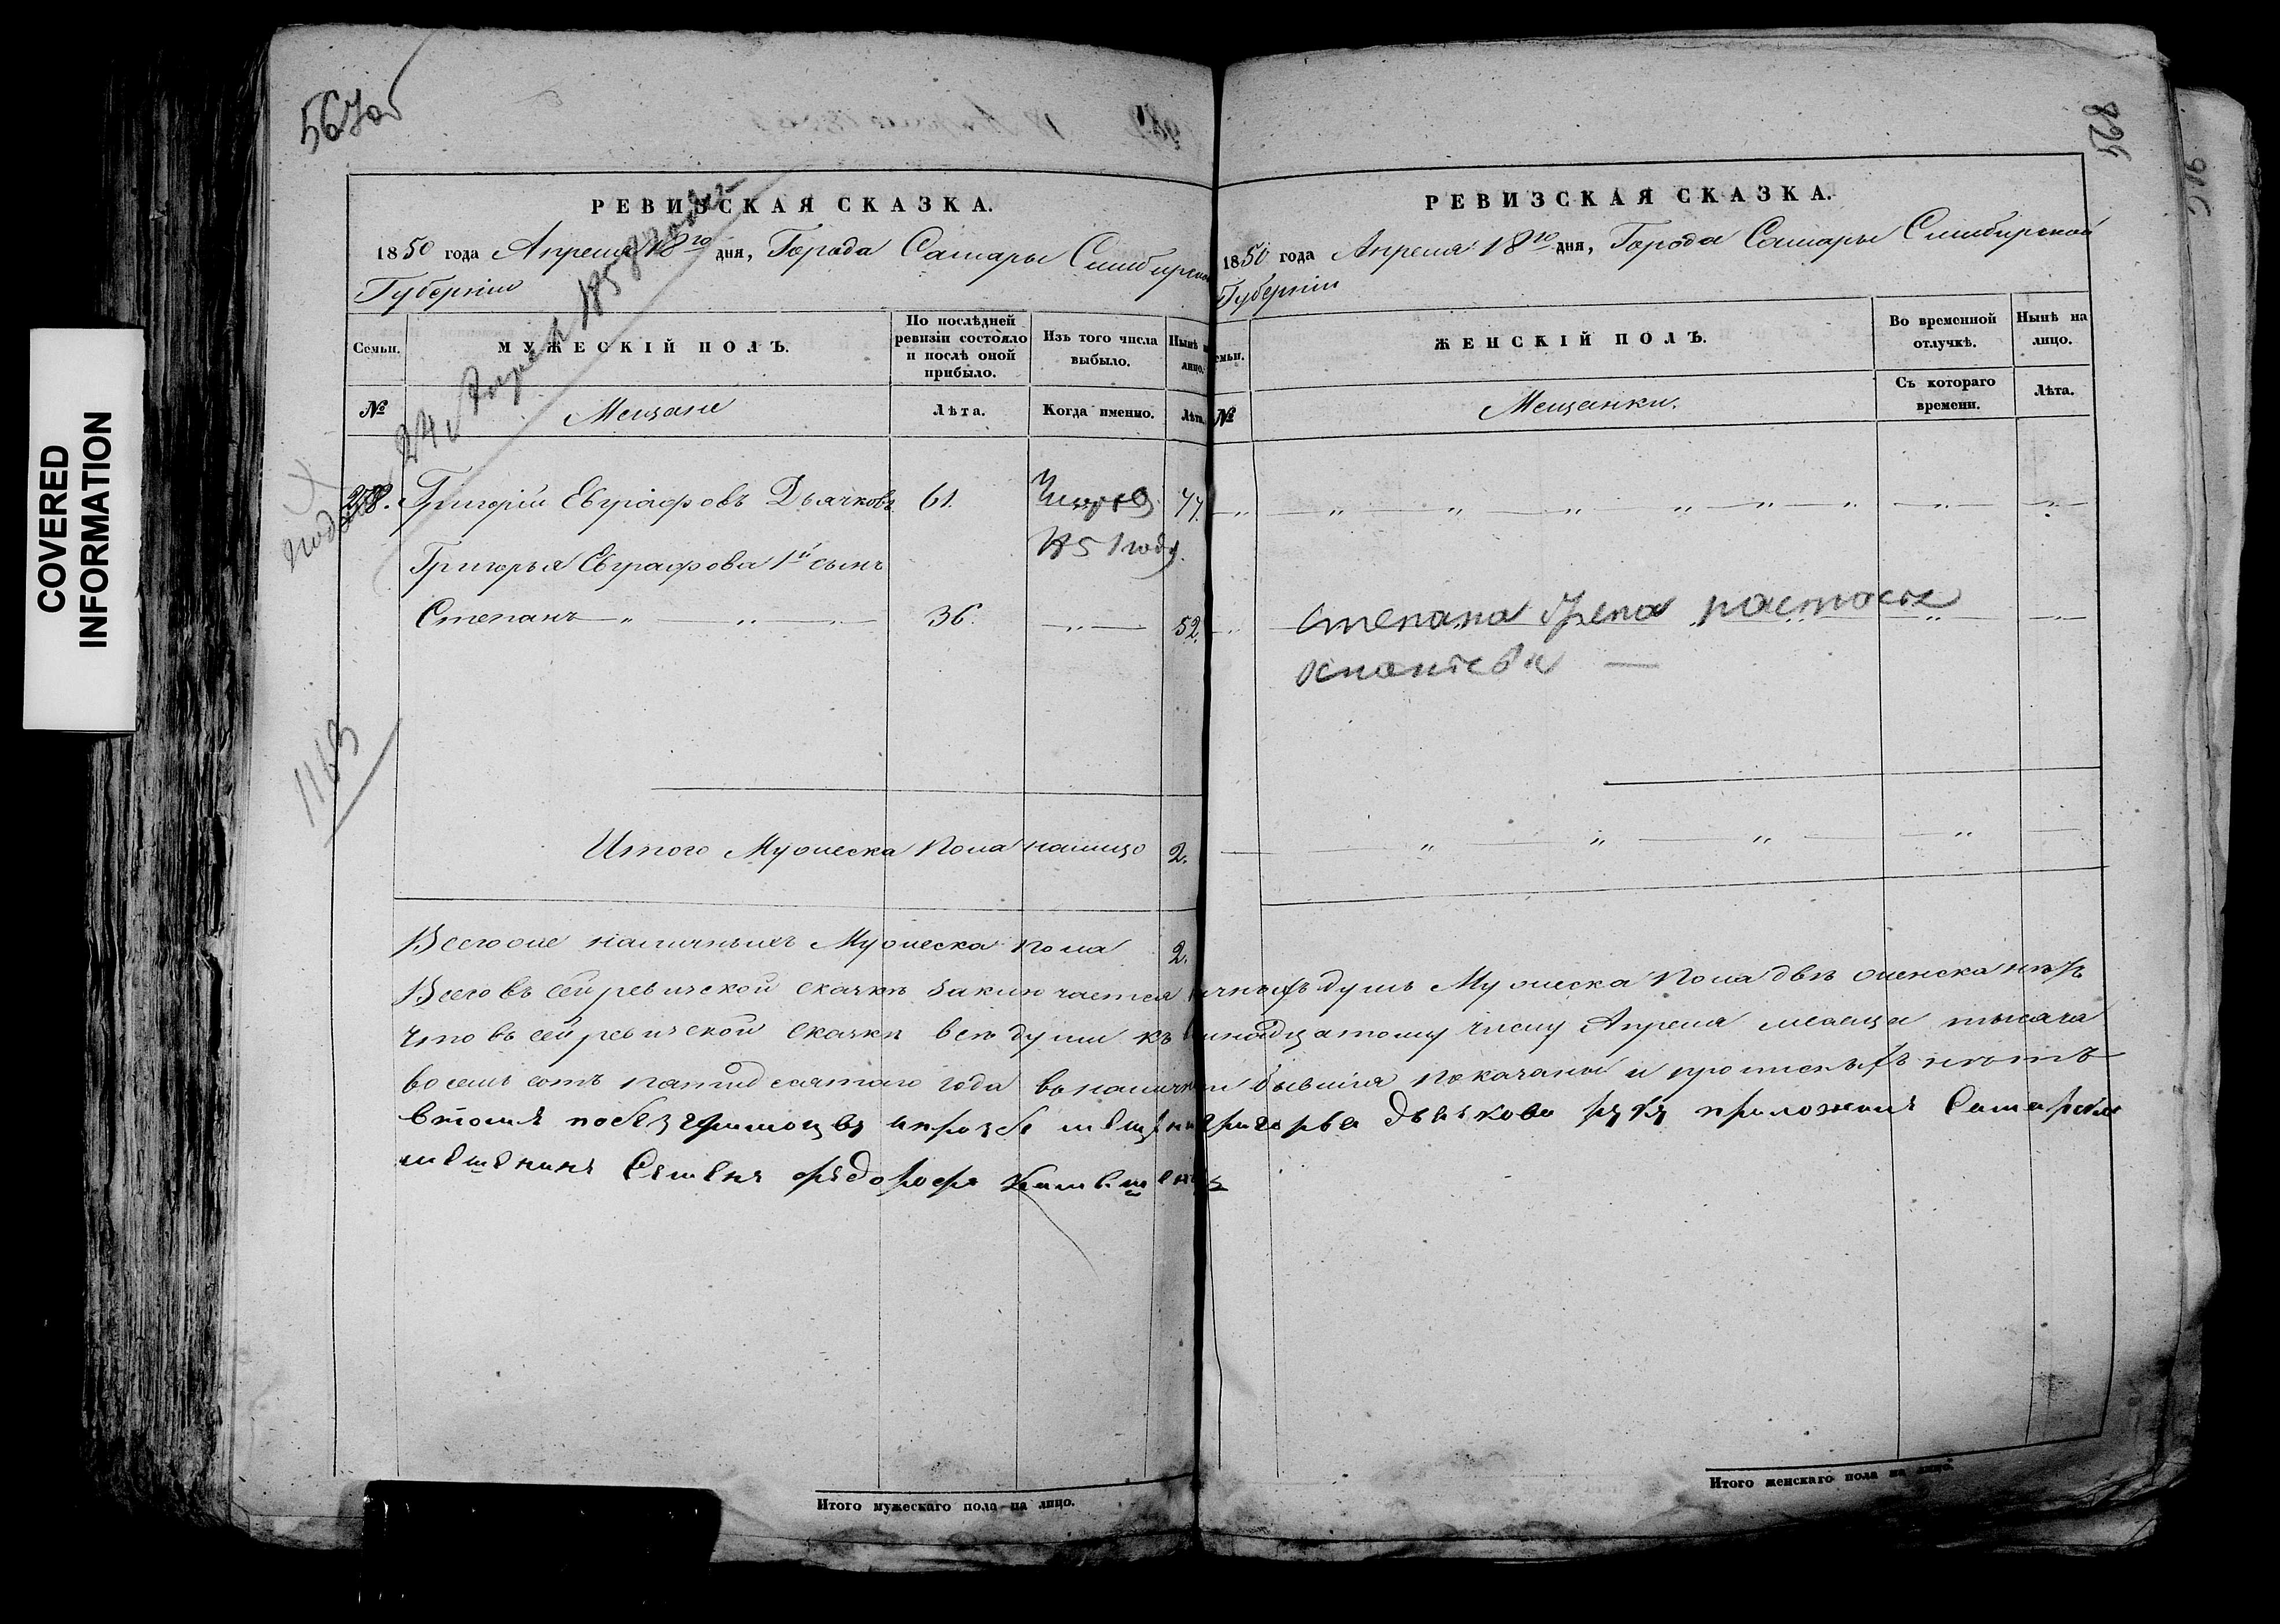 567об
828
916
COVERED
INFORMATION
РЕВИЗСКАЯ СКАЗКА.
1850 года Апреля 18го дня, Города Самары Симбирской
Губернии
24 Апреля 1858 года
Семьи.
МУЖЕСКІЙ ПОЛЪ.
По послѣдней
ревизіи состояло
и послѣ оной
прибыло.
Изъ того числа
выбыло.
Нынѣ на
лицо.
№
Мещане
Лѣта.
Когда именно.
Лѣта.
278. Григорій Евграфовъ Дьячковъ 61. Умеръ 77.
1851 году.
Григорья Евграфова 1й сынъ
Степанъ 36. 52.
1163
Итого Мужеска Пола налицо 2.
Всего же наличныхъ Мужеска пола 2.
РЕВИЗСКАЯ СКАЗКА.
1850 года Апреля 18го дня, Города Самары Симбирской
Губерніи
Семьи.
ЖЕНСКІЙ ПОЛЪ.
Во временной
отлучкѣ.
Нынѣ на
лицо.
№
Мещанки.
Съ котораго
времени.
Лѣта.
Степана жена
Всего въ сей ревизской скаскѣ заключается наличныхъ душъ Мужеска Пола двѣ женска нѣтъ
что въ сей ревизской скаскѣ всѣ души къ осмнадцатому числу Апреля месяца тысяча
восемь сотъ пятидесятаго года въ наличи и бывшия показаны и прописныхъ нѣтъ
втомъ побезграмотству ипрозбе мещенина григорья дьячкова руку приложилъ Самарской
мещенинъ Семенъ федорофъ
Итого мужескаго пола на лицо.
Итого женскаго пола на лицо.